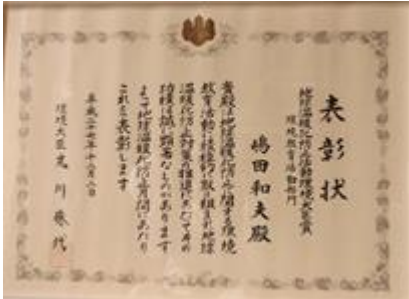 表彰状
地球温暖化防止活動環境大臣賞
環境教育活動部門
嶋田和夫殿
貴殿は地球温暖化防止に関する環境
教育活動に積極的に取り組まれ地球
温暖化防止対策の推進に尽力され
功績は誠に顕著なものがあります
よって地球温暖化防止月間にあたり
これを表彰します
平成二十七年十二月二日
環境大臣丸川珠代